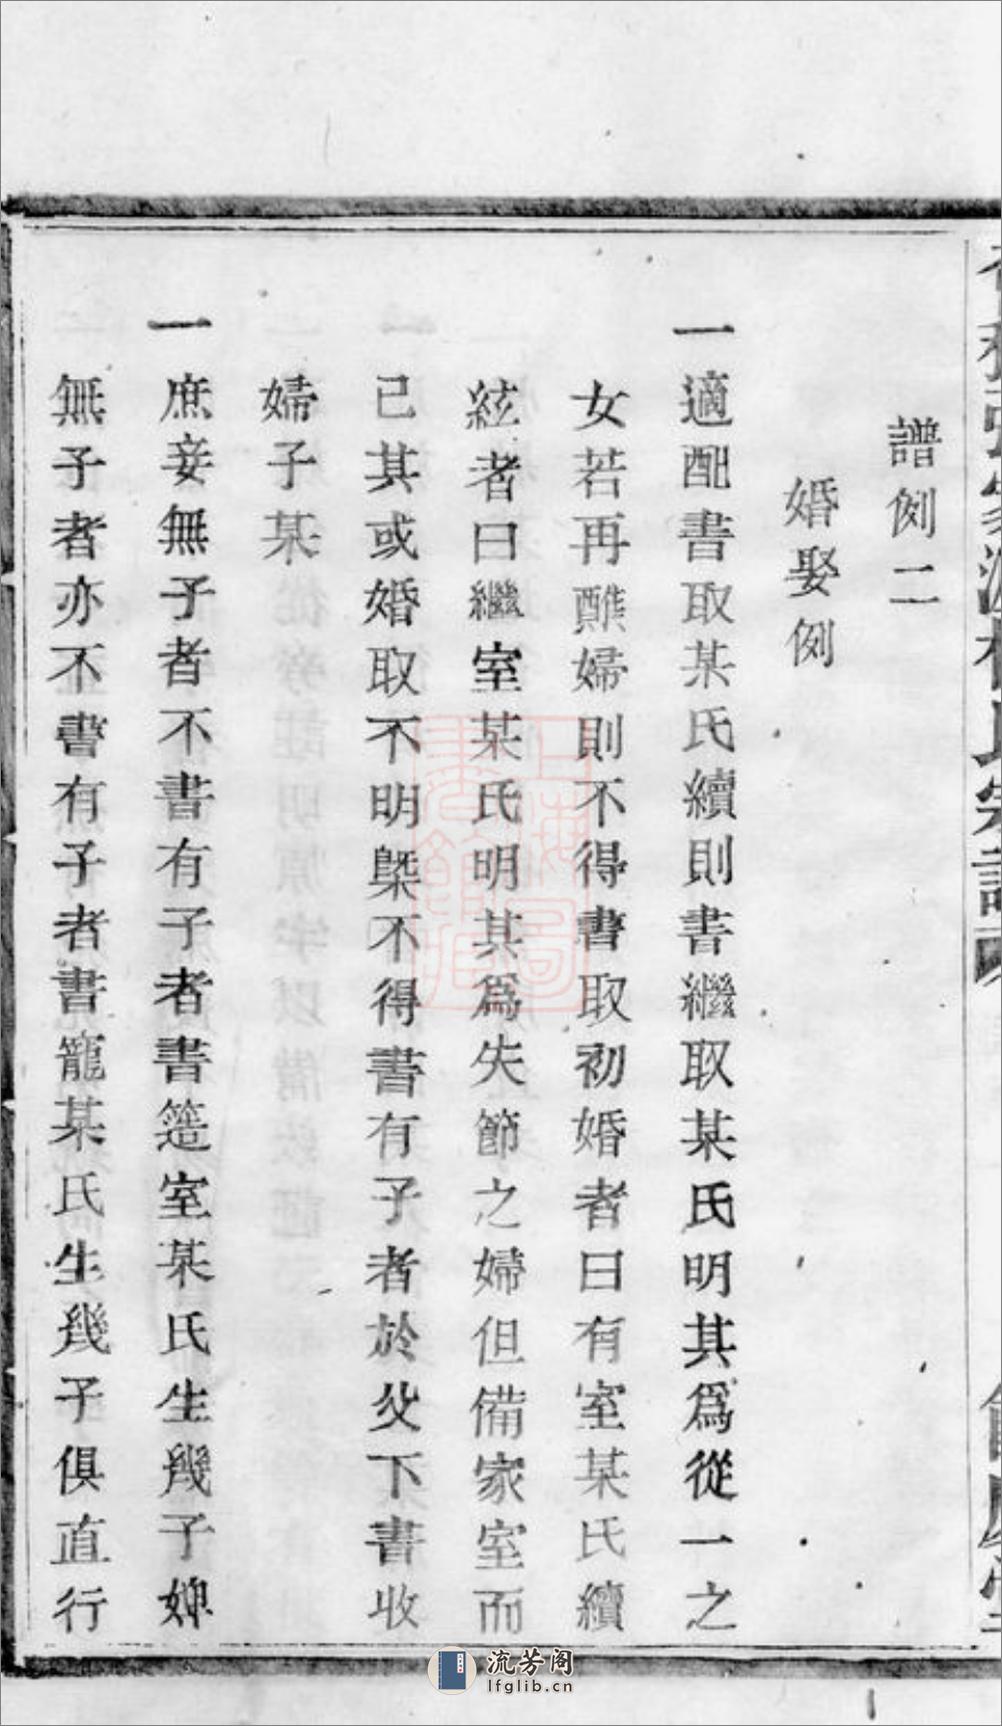 譜例二
婚娶例
一適配書取某氏續則書繼取某氏明其爲從一之
女若再醮婦則不得書取初婚者曰有室某氏續
絃者曰繼室某氏明其爲失節之婦但備家室而
已其或婚取不明槩不得書有子者於父下書收
婦子某
一庶妾無子者不書有子者書簉室某氏生幾子婢
無子者亦不書有子者書寵某氏生幾子俱直行
流芳阁
lfglib.cn